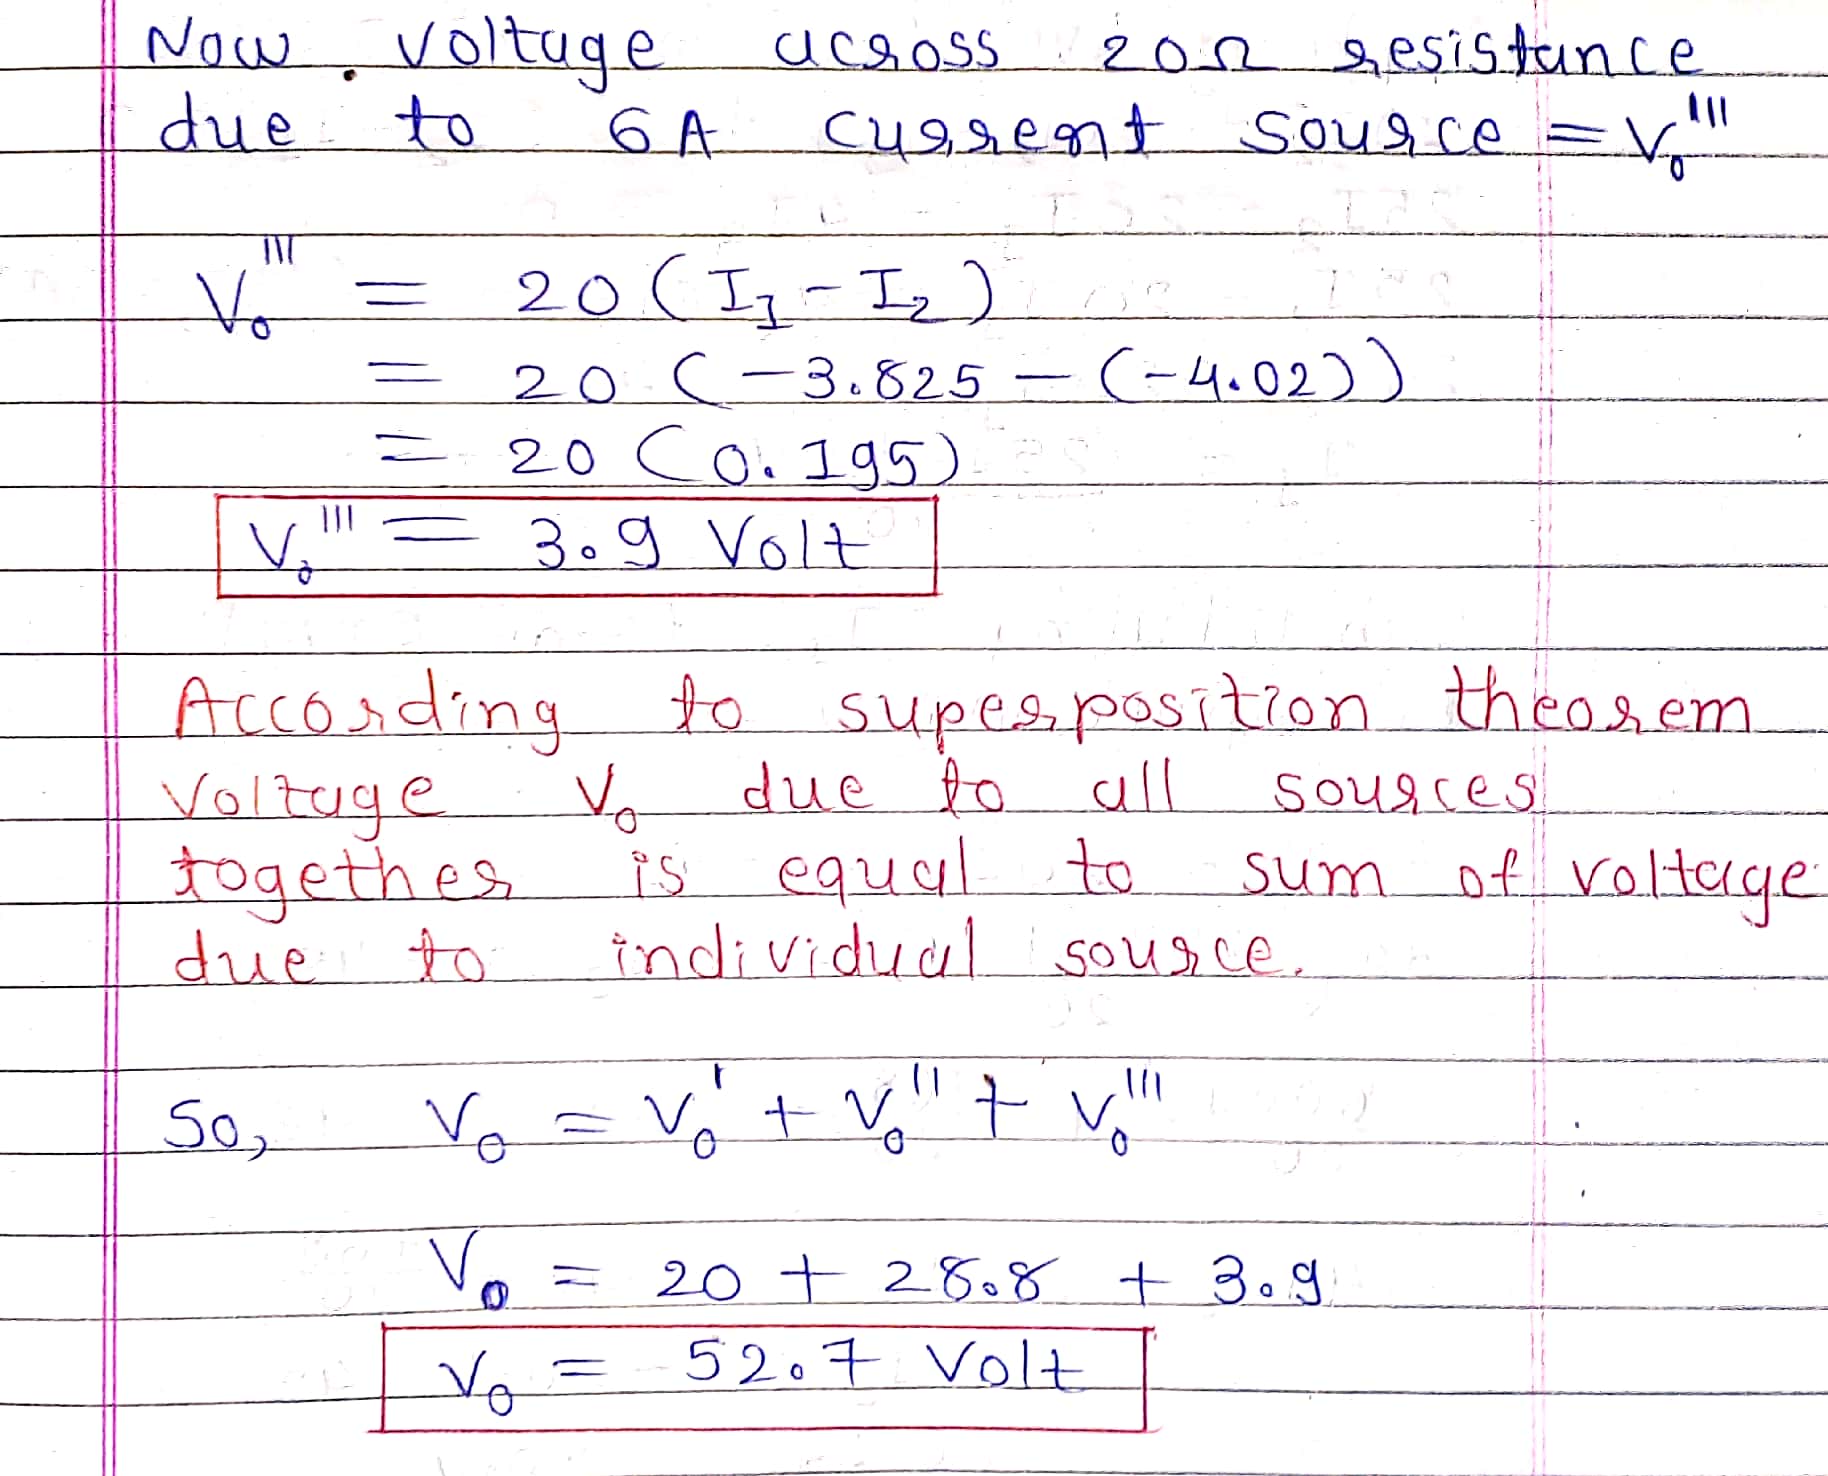 Now, voltage across 20Ω resistance
due to 6A current source = V₀'''
V₀''' = 20 (I₁ - I₂)
= 20 (-3.825 - (-4.02))
= 20 (0.195)
V₀''' = 3.9 Volt
According to superposition theorem
voltage V₀ due to all sources
together is equal to sum of voltage
due to individual source.
So, V₀ = V₀' + V₀'' + V₀'''
V₀ = 20 + 28.8 + 3.9
V₀ = 52.7 Volt